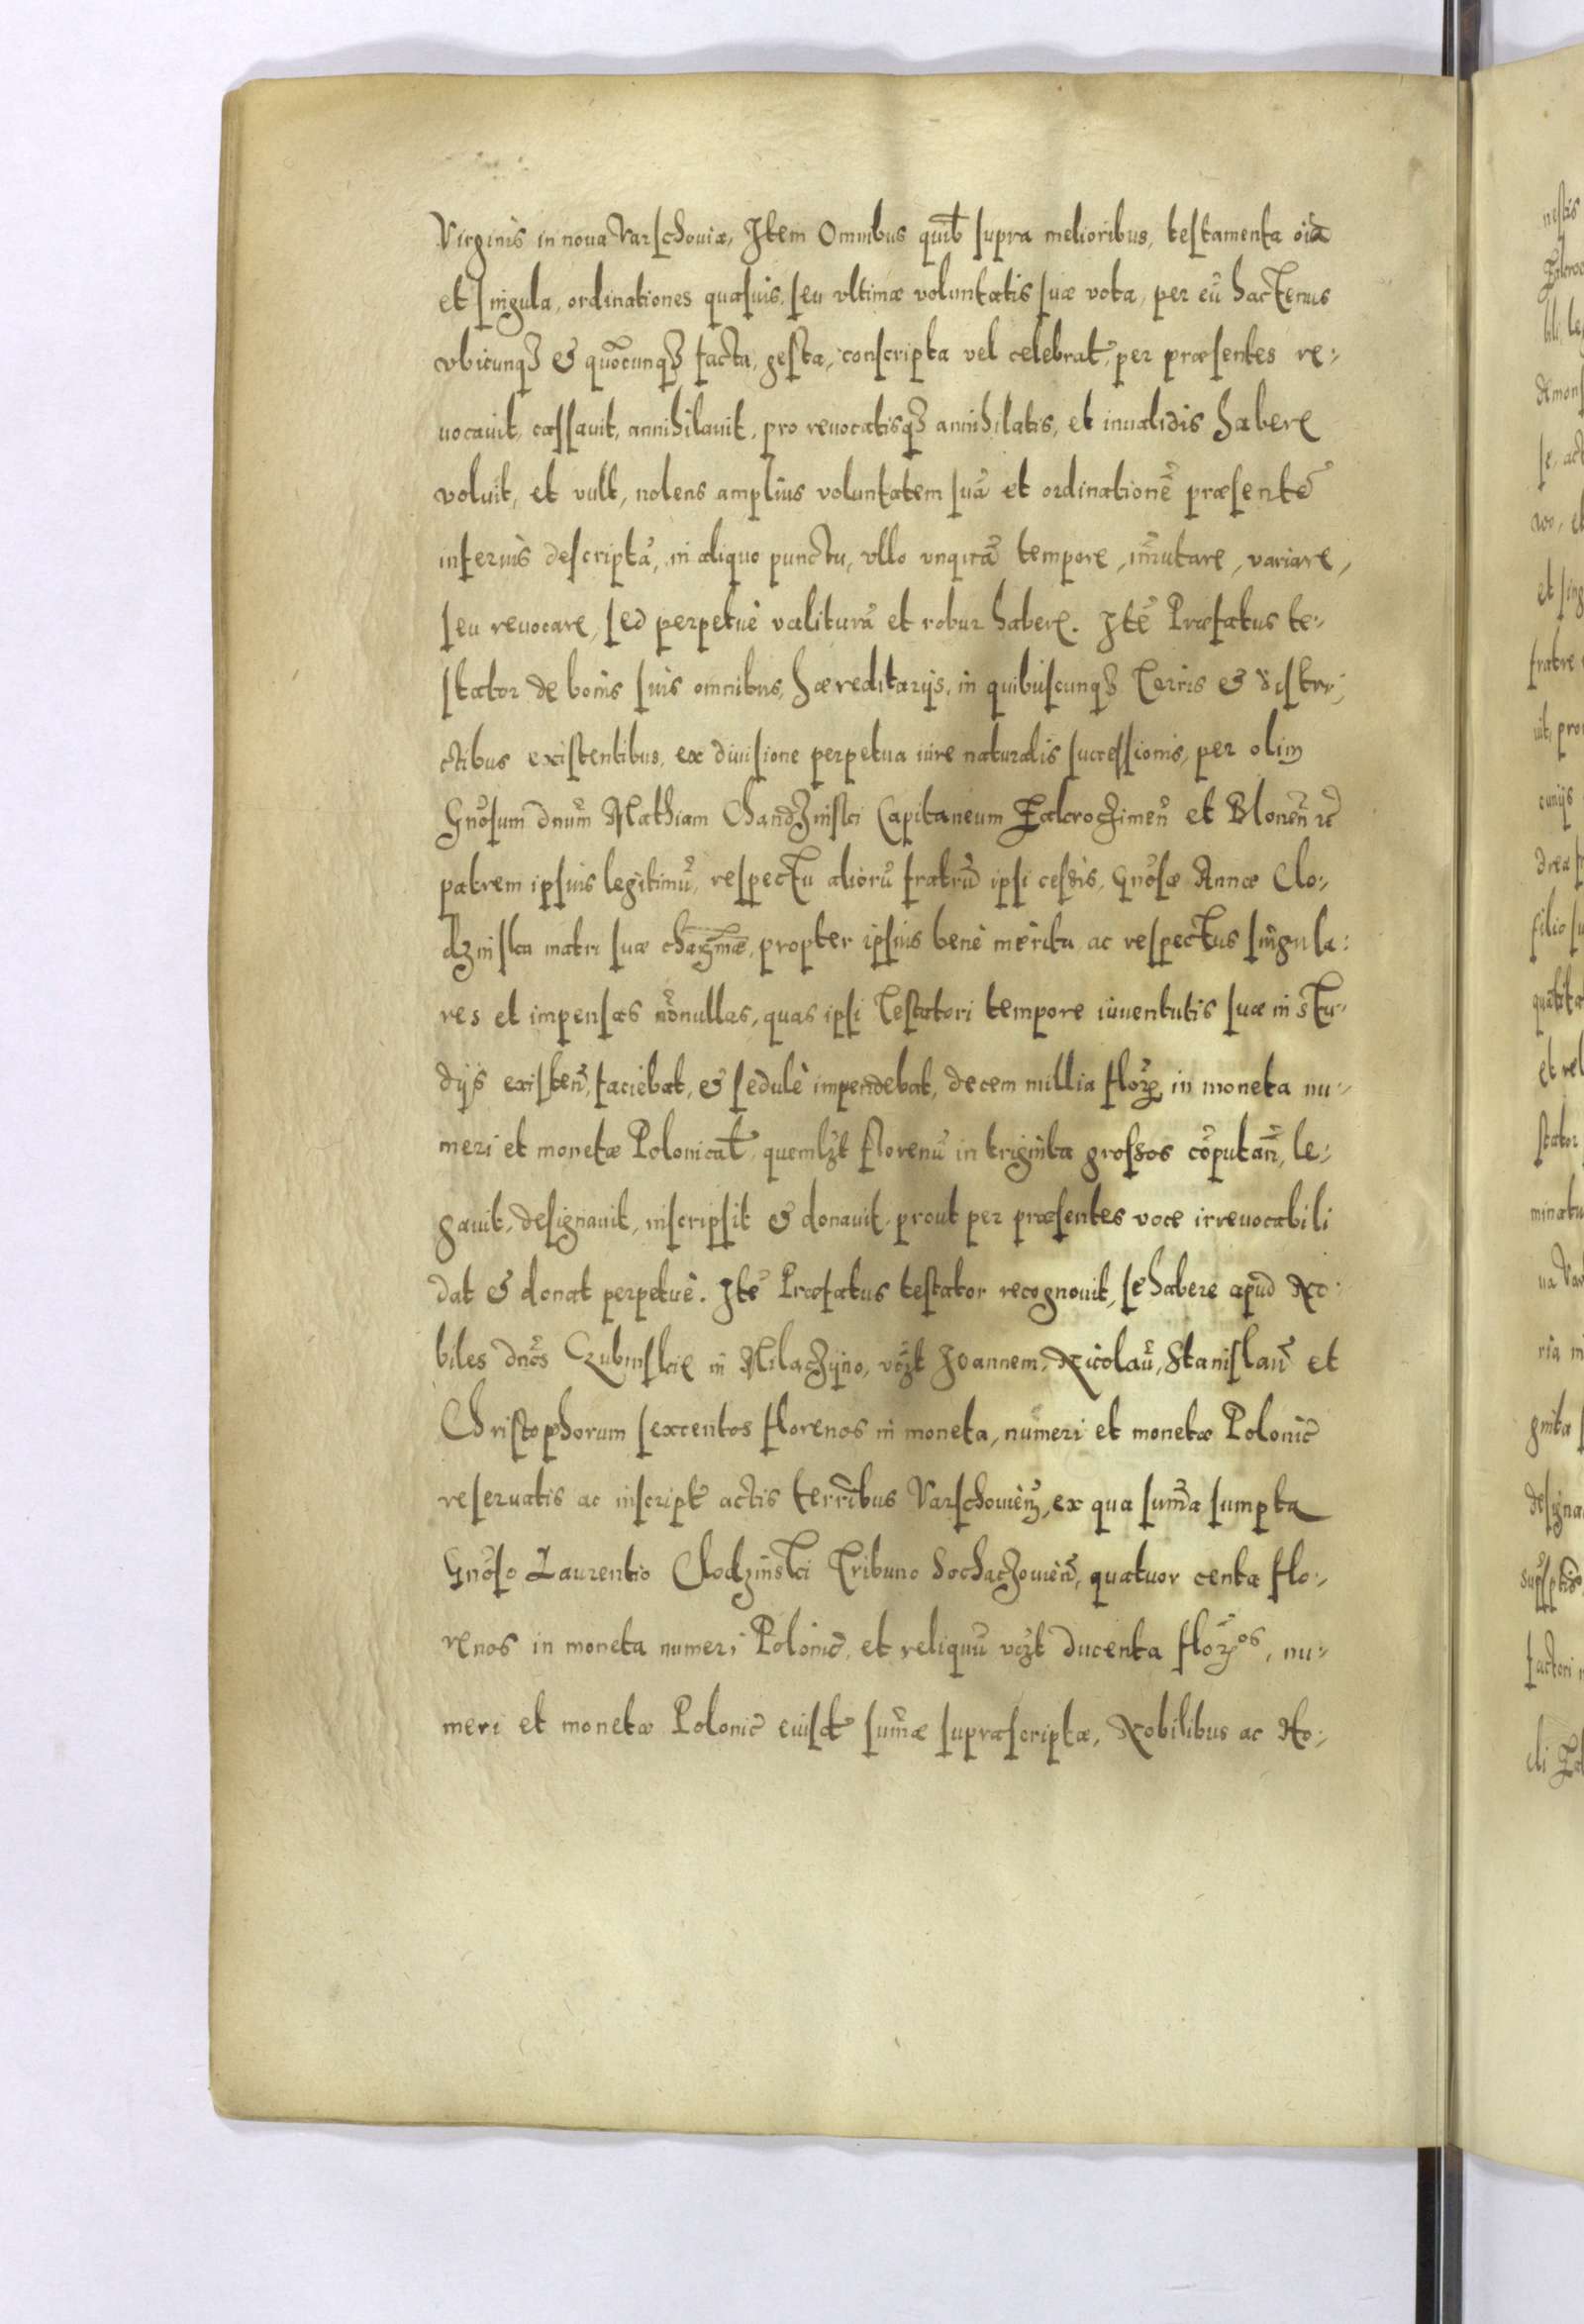 Virginis in noua Varschouiæ, Item Omnibus quib̃ supra melioribus, testamenta oia
et singula, ordinationes quasuis, seu vltimæ voluntatis suæ vota, per eũ hactenus
vbicunqȝ & quõcunqȝ facta, gesta, conscripta vel celebrat, per præsentes re:
uocauit, cassauit, annihilauit, pro reuocatisqȝ annihilatis, et inualidis habere
voluit, et vult, nolens amplius voluntatem suã et ordinationẽ præsentẽ
inferius descriptã, in aliquo punctu, vllo vnquã tempore, im̃utare, variare,
seu reuocare, sed perpetuè valiturã et robur habere. Itẽ Præfatus te:
stator de bonis suis omnibus, hæreditarijs, in quibuscunqȝ terris & distri:
ctibus existentibus, ex diuisione perpetua iure naturalis successionis, per olim
Gnõsum dnũm Mathiam Chandzinski Capitaneum Zakroczimeñ et Bloneñ
patrem ipsius legitimũ, respectu aliorũ fratrũ ipsi cessis, Gnõsæ Annæ Clo:
dzinska matri suæ charmæ, propter ipsius benè merita ac respectus singula:
res et impensas nõnullas, quas ipsi testatori tempore iuuentutis suæ in stu:
dijs existeñ, faciebat, & sedulè impendebat, decem millia flor̃ in moneta nu:
meri et monetæ Polonicat̃, quemlȝt florenũ in triginta grossos cõputañ, le:
gauit, designauit, inscripsit & donauit, prout per præsentes voce irreuocabili
dat & donat perpetuè. Itẽ Præfatus testator recognouit, se habere apud No:
biles dnõs Czubinskie in Milaczyno, vcȝt Ioannem, Nicolaũ, Stanislaũ et
Christophorum sexcentos florenos in moneta, numeri et monetæ Polonic̃
reseruatis ac inscript̃ actis terr̃ibus Varschouieñ, ex qua sum̃a sumpta
Gnõso Laurentio Clodzinski Tribuno Sochaczouieñ, quatuor centa flo:
renos in moneta numeri Polonic̃, et reliquũ vcȝt ducenta flor̃os, nu:
meri et monetæ Polonic̃ eiusd̃ sum̃æ supræscriptæ, Nobilibus ac Ho: